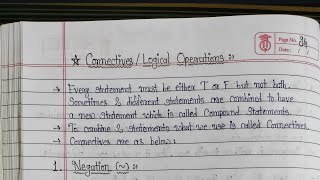 Page No. 34
Date:
☆ Connectives/Logical Operations :-
→ Every statement must be either T or F but not both.
Sometimes 2 different statements are combined to have
a new statement which is called Compound Statements.
→ To combine 2 statements what we use is called Connectives.
→ Connectives are as below:
1. Negation (~) :-